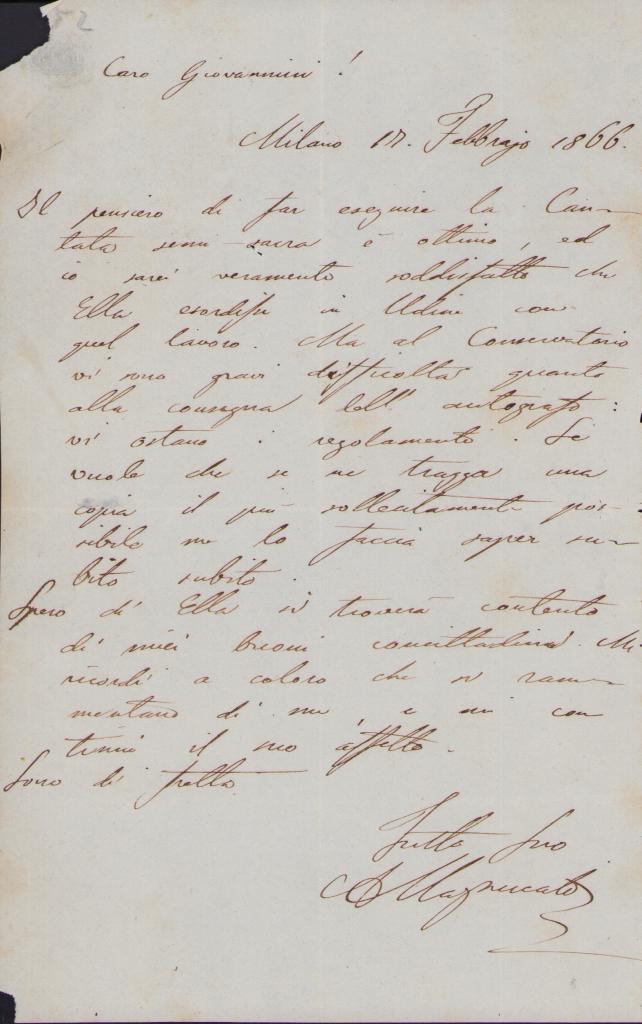 52
Caro Giovannini!
Milano 17. Febbrajo 1866.
Il pensiero di far eseguire la Can-
tata semi-sacra è ottimo, ed
io sarei veramente soddisfatto che
Ella esordisse in Udine con
quel lavoro. Ma al Conservatorio
vi sono gravi difficoltà quanto
alla consegna dell' autografo:
vi ostano i regolamenti. Se
vuole che se ne tragga una
copia il più sollecitamente pos-
sibile me lo faccia saper su-
bito subito.
Spero ch' Ella si troverà contento
di miei buoni concittadini. Mi
ricordi a coloro che si ram-
mentano di me e mi con
tinui il suo affetto.
Sono di fretta
Tutto Suo
A Mazzucato